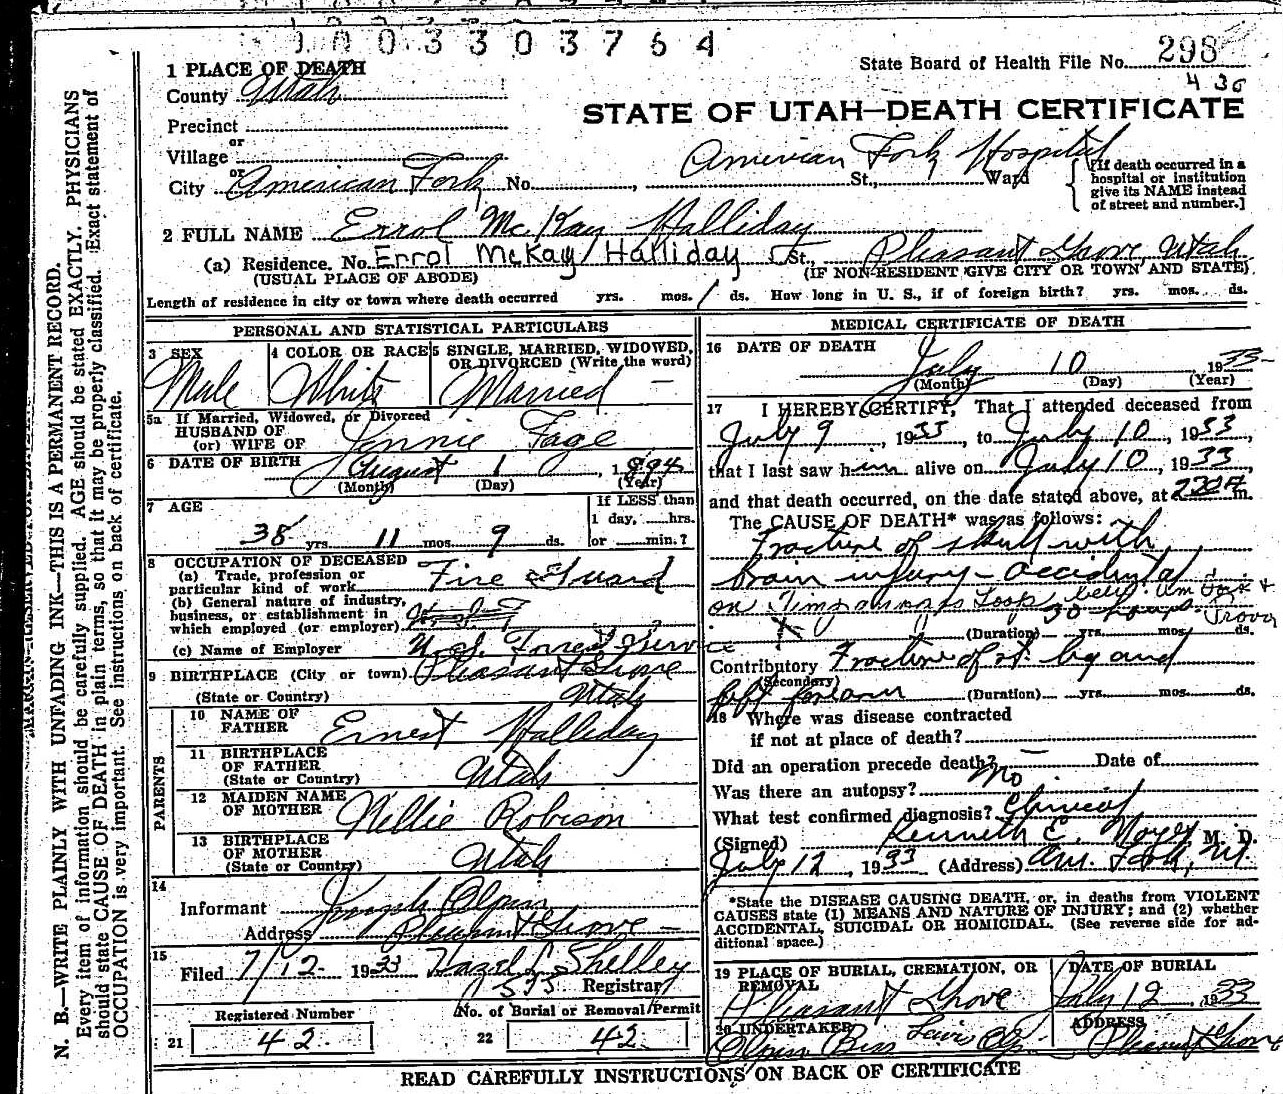 1003303764
State Board of Health File No. 298
436
1 PLACE OF DEATH
County Utah
STATE OF UTAH—DEATH CERTIFICATE
Precinct
or
Village
American Fork Hospital
or
City American Fork No. , St., Ward
[If death occurred in a
hospital or institution
give its NAME instead
of street and number.]
2 FULL NAME Errol McKay Halliday
(a) Residence. No. Errol McKay Halliday St., Pleasant Grove, Utah
(USUAL PLACE OF ABODE) (IF NON-RESIDENT GIVE CITY OR TOWN AND STATE)
Length of residence in city or town where death occurred yrs. mos. 1 ds. How long in U. S., if of foreign birth? yrs. mos. ds.
PERSONAL AND STATISTICAL PARTICULARS
3 SEX
Male
4 COLOR OR RACE
White
5 SINGLE, MARRIED, WIDOWED,
OR DIVORCED (Write the word)
Married —
5a If Married, Widowed, or Divorced
HUSBAND OF
(or) WIFE OF Jennie Fage
6 DATE OF BIRTH August 1, 1894
(Month) (Day) (Year)
7 AGE
38 yrs 11 mos 9 ds.
If LESS than
1 day, hrs.
or min.?
8 OCCUPATION OF DECEASED
(a) Trade, profession or
particular kind of work Fire Guard
(b) General nature of industry,
business, or establishment in
which employed (or employer)
(c) Name of Employer U.S. Forrest Service
9 BIRTHPLACE (City or town) Pleasant Grove
(State or Country) Utah
PARENTS
10 NAME OF
FATHER Ernest Halliday
11 BIRTHPLACE
OF FATHER
(State or Country) Utah
12 MAIDEN NAME
OF MOTHER Nellie Robison
13 BIRTHPLACE
OF MOTHER
(State or Country) Utah
14
Informant Joseph Olpin
Address Pleasant Grove —
15
Filed 7/12 1933 Hazel L. Shelley
535 Registrar
Registered Number
21 42
No. of Burial or Removal Permit
22 42
MEDICAL CERTIFICATE OF DEATH
16 DATE OF DEATH
July 10 1933
(Month) (Day) (Year)
17 I HEREBY CERTIFY, That I attended deceased from
July 9, 1933, to July 10, 1933,
that I last saw him alive on July 10, 1933,
and that death occurred, on the date stated above, at 230A m.
The CAUSE OF DEATH* was as follows:
Fracture of skull with
brain injury – accidental
on Timpanogos Loop betw. Am Fork &
30 hours. Provo
(Duration) yrs. mos. ds.
Contributory Fracture of rt. leg and
(Secondary)
left forearm (Duration) yrs. mos. ds.
18 Where was disease contracted
if not at place of death?
Did an operation precede death? Date of
Was there an autopsy? No
What test confirmed diagnosis? Clinical
(Signed) Kenneth E. Noyes M. D.
July 12, 1933 (Address) Am. Fork, Ut.
*State the DISEASE CAUSING DEATH, or, in deaths from VIOLENT
CAUSES state (1) MEANS AND NATURE OF INJURY; and (2) whether
ACCIDENTAL, SUICIDAL OR HOMICIDAL. (See reverse side for ad-
ditional space.)
19 PLACE OF BURIAL, CREMATION, OR
REMOVAL
Pleasant Grove
DATE OF BURIAL
July 12, 1933
20 UNDERTAKER
Olpin Bros
ADDRESS
Pleasant Grove
READ CAREFULLY INSTRUCTIONS ON BACK OF CERTIFICATE
MARGIN RESERVED FOR BINDING
N. B.—WRITE PLAINLY WITH UNFADING INK—THIS IS A PERMANENT RECORD.
Every item of information should be carefully supplied. AGE should be stated EXACTLY. PHYSICIANS
should state CAUSE OF DEATH in plain terms, so that it may be properly classified. Exact statement of
OCCUPATION is very important. See instructions on back of certificate.